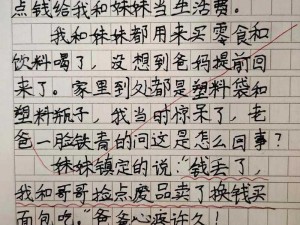 点钱给我和妹妹当生活费。
我和妹妹都用来买零食和
饮料喝了，没想到爸妈提前回
来了。家里到处都是塑料袋和
塑料瓶子，我当时惊呆了，老
爸一脸铁青的问这是怎么回事？
妹妹镇定的说："钱丢了，
我和哥哥捡点废品卖了换钱买
面包吃。"爸爸心疼许久！